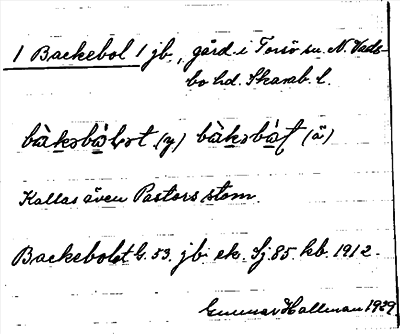 1 Backebol 1 jb., gård i Torsö sn. N. Vads-
bo hd. Skarab. l.
bàkəbòlət (y) bàkəbòt (ä)
Kallas även Pastors stom.
Backebolet G. 53. jb. ek. Sj. 85. kb. 1912.
Gunnar Hallman 1929.